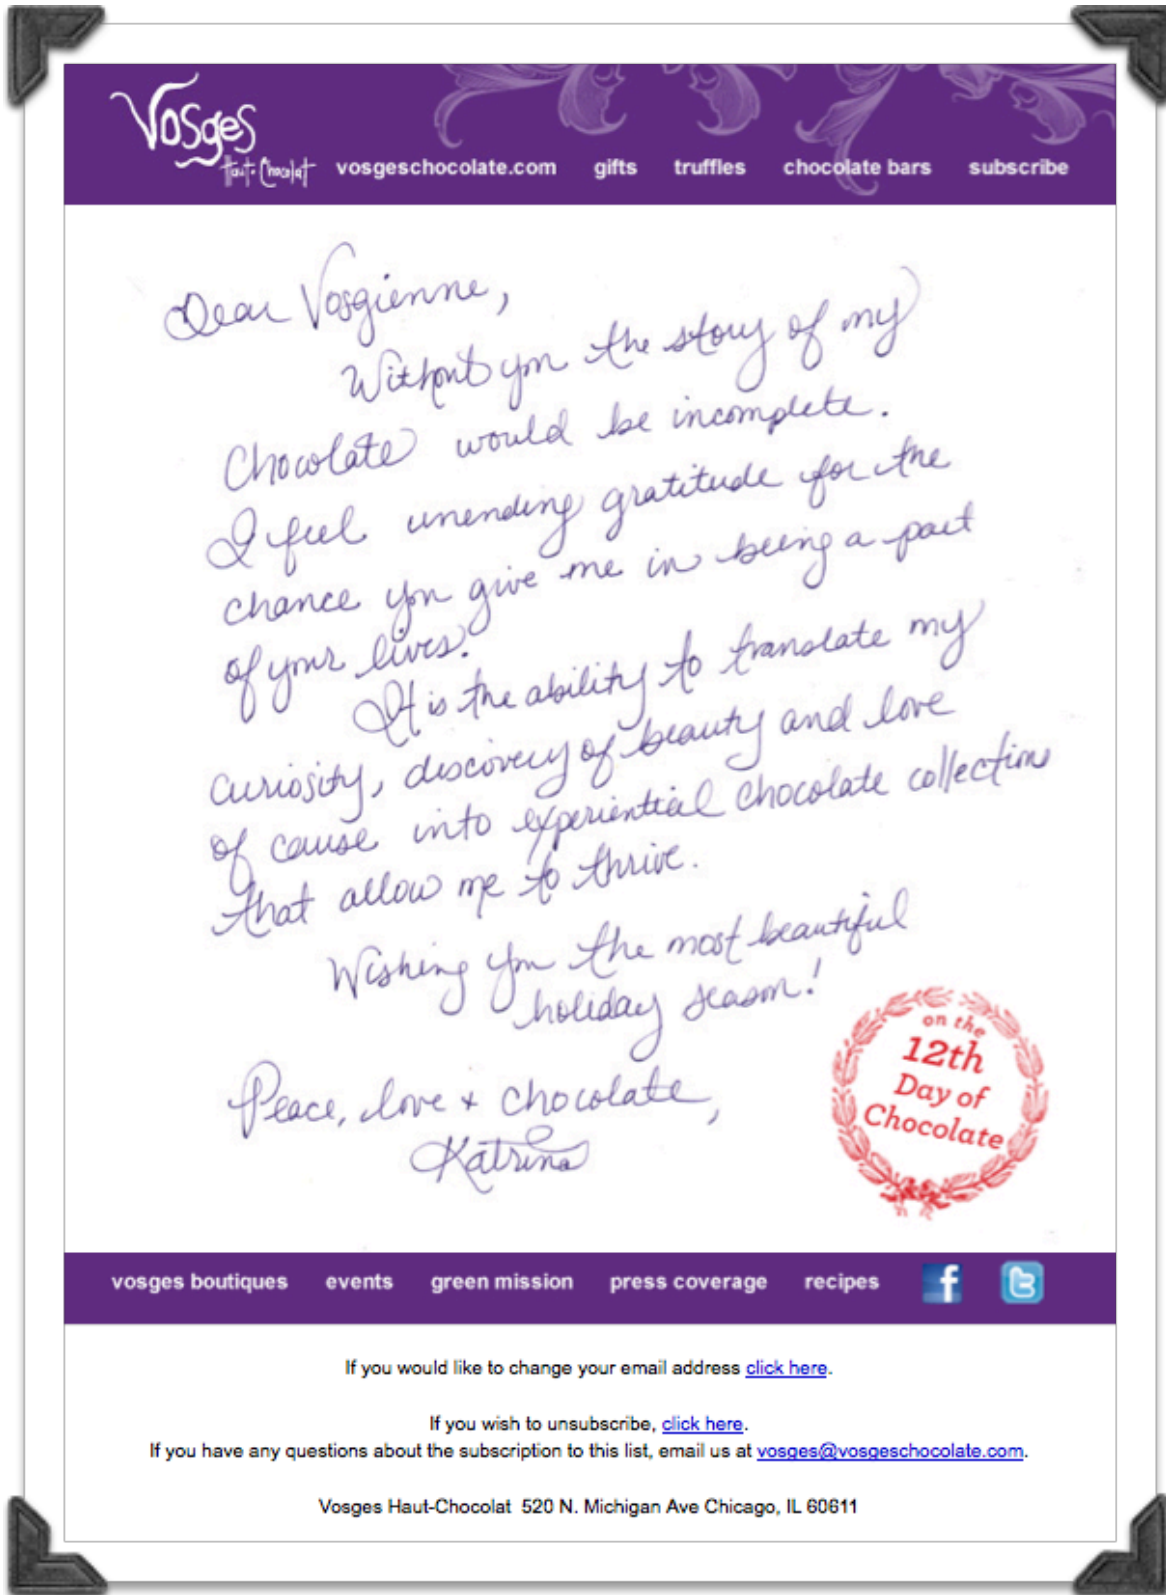 Vosges
Haut-Chocolat
vosgeschocolate.com gifts truffles chocolate bars subscribe
Dear Vosgienne,
Without you the story of my
Chocolate would be incomplete.
I feel unending gratitude for the
chance you give me in being a part
of your lives.
It is the ability to translate my
curiosity, discovery of beauty and love
of cause into experiential chocolate collections
that allow me to thrive.
Wishing you the most beautiful
holiday season!
Peace, love + chocolate,
Katrina
on the
12th
Day of
Chocolate
vosges boutiques events green mission press coverage recipes f t
If you would like to change your email address click here.
If you wish to unsubscribe, click here.
If you have any questions about the subscription to this list, email us at vosges@vosgeschocolate.com.
Vosges Haut-Chocolat 520 N. Michigan Ave Chicago, IL 60611